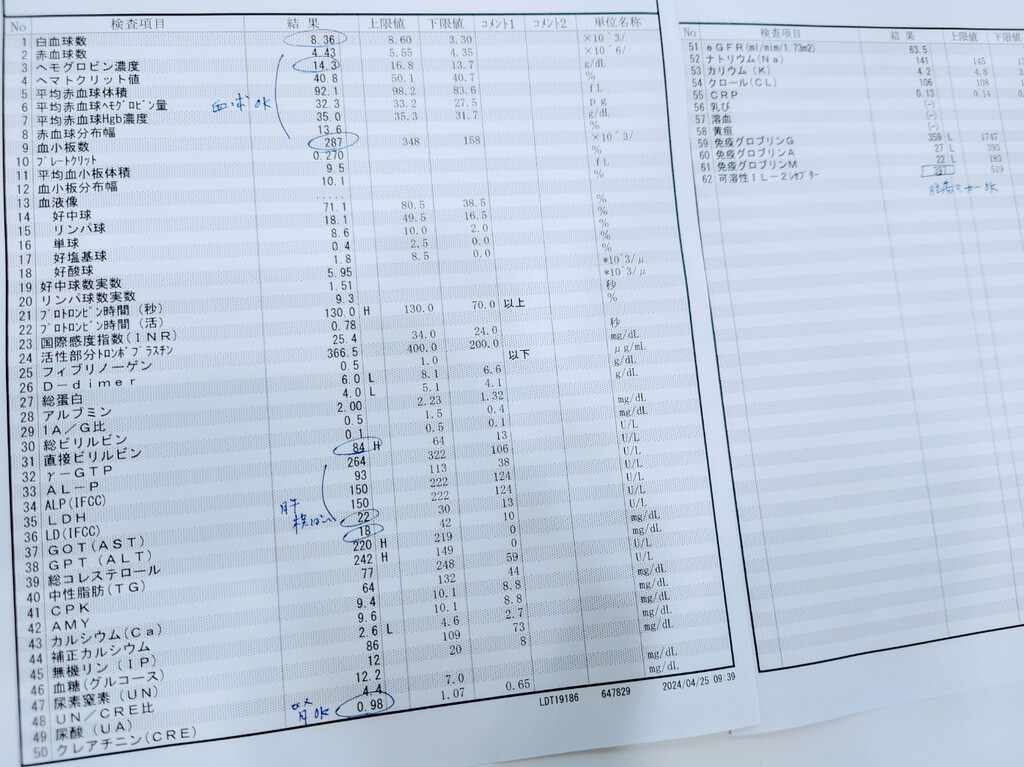 No 検査項目 結果 上限値 下限値 コメント1 コメント2 単位名称
1 白血球数 8.36 8.60 3.30 ×10^3/
2 赤血球数 4.43 5.55 4.35 ×10^6/
3 ヘモグロビン濃度 14.3 16.8 13.7 g/dL
4 ヘマトクリット値 40.8 50.1 40.7 %
5 平均赤血球体積 92.1 98.2 83.6 fL
6 平均赤血球ヘモグロビン量 32.3 33.2 27.5 pg
7 平均赤血球Hgb濃度 35.0 35.3 31.7 g/dL
8 赤血球分布幅 13.6 %
血球OK
9 血小板数 287 348 158 ×10^3/
10 プレートクリット 0.270 %
11 平均血小板体積 9.5 fL
12 血小板分布幅 10.1 %
13 血液像 .....
14 好中球 71.1 80.5 38.5 %
15 リンパ球 18.1 49.5 16.5 %
16 単球 8.6 10.0 2.0 %
17 好塩基球 0.4 2.5 0.0 %
18 好酸球 1.8 8.5 0.0 %
19 好中球数実数 5.95 *10^3/μ
20 リンパ球数実数 1.51 *10^3/μ
21 プロトロンビン時間(秒) 9.3 秒
22 プロトロンビン時間(活) 130.0 H 130.0 70.0 以上 %
23 国際感度指数(INR) 0.78
24 活性部分トロンボプラスチン 25.4 34.0 24.0 秒
25 フィブリノーゲン 366.5 400.0 200.0 mg/dL
26 D-dimer 0.5 1.0 以下 μg/mL
27 総蛋白 6.0 L 8.1 6.6 g/dL
28 アルブミン 4.0 L 5.1 4.1 g/dL
29 1A/G比 2.00 2.23 1.32
30 総ビリルビン 0.5 1.5 0.4 mg/dL
31 直接ビリルビン 0.1 0.5 0.1 mg/dL
32 γ-GTP 84 H 64 13 U/L
33 AL-P 264 322 106 U/L
34 ALP(IFCC) 93 113 38 U/L
35 LDH 150 222 124 U/L
36 LD(IFCC) 150 222 124 U/L
肝
37 GOT(AST) 22 30 13 U/L
38 GPT(ALT) 18 42 10 U/L
39 総コレステロール 220 H 219 0 mg/dL
40 中性脂肪(TG) 242 H 149 0 mg/dL
41 CPK 77 248 59 U/L
42 AMY 64 132 44 U/L
43 カルシウム(Ca) 9.4 10.1 8.8 mg/dL
44 補正カルシウム 9.6 10.1 8.8 mg/dL
45 無機リン(IP) 2.6 L 4.6 2.7 mg/dL
46 血糖(グルコース) 86 109 73 mg/dL
47 尿素窒素(UN) 12 20 8 mg/dL
48 UN/CRE比 12.2
49 尿酸(UA) 4.4 7.0 mg/dL
50 クレアチニン(CRE) 0.98 1.07 0.65 mg/dL
腎OK
LDT19186 647829 2024/04/25 09:39
No 検査項目 結果 上限値 下限値
51 eGFR(ml/mim/1.73m2) 63.5
52 ナトリウム(Na) 141 145 13
53 カリウム(K) 4.2 4.8 3.
54 クロール(CL) 106 108
55 CRP 0.13 0.14 0.
56 乳び (-)
57 溶血 (-)
58 黄疸 (-)
59 免疫グロブリンG 359 L 1747
60 免疫グロブリンA 27 L 393
61 免疫グロブリンM 22 L 183
62 可溶性IL-2レセプター 519